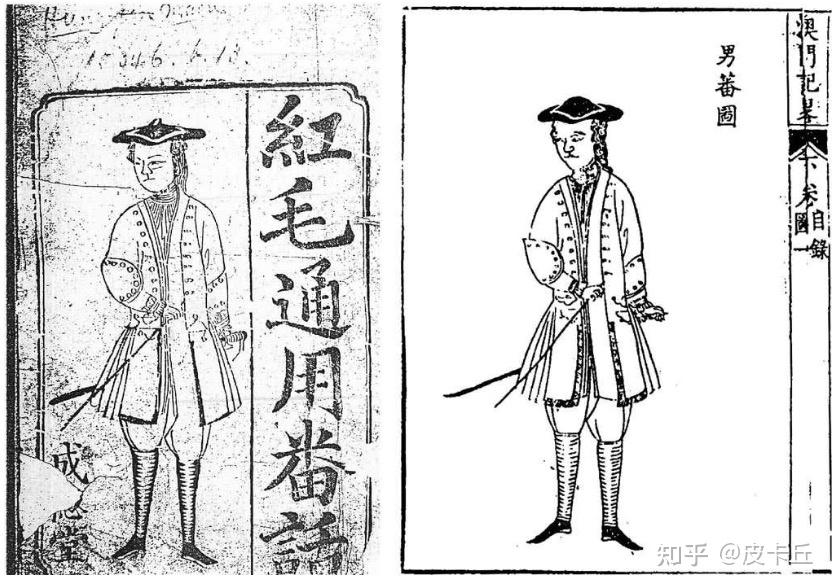 15346.b.13.
紅毛通用番話
成 堂
澳門記畧
下卷
目錄
圖一
男蕃圖
知乎 @皮卡丘